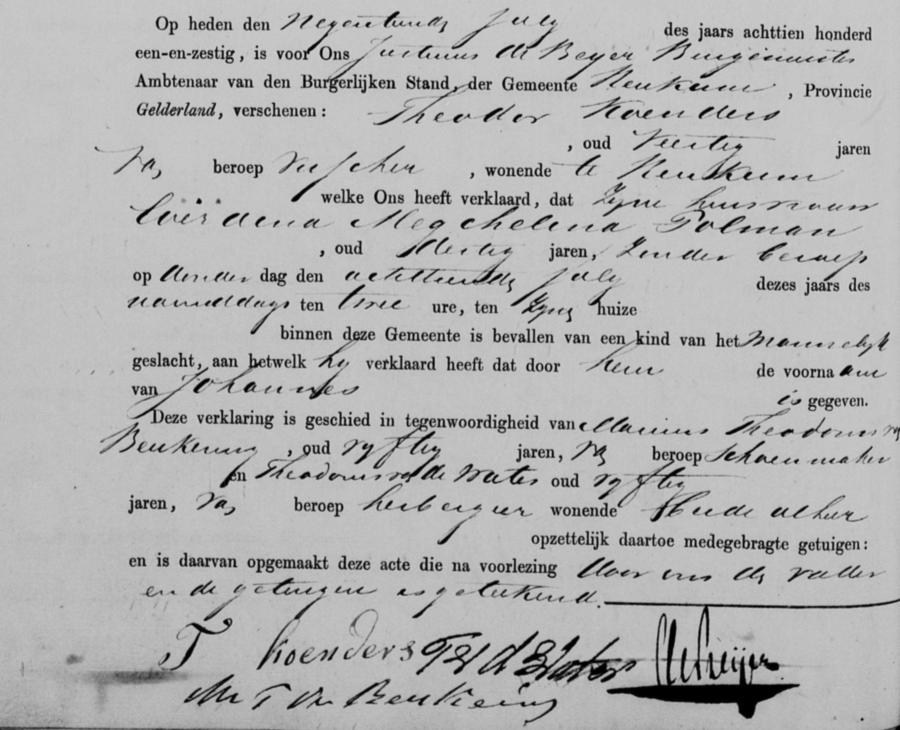 Op heden den Negentiende July des jaars achttien honderd
een-en-zestig, is voor Ons Justinus de Beyer Burgemeester
Ambtenaar van den Burgerlijken Stand, der Gemeente Beukum, Provincie
Gelderland, verschenen: Theodor Koenders
, oud Veertig jaren
van beroep visscher, wonende te Beukum
welke Ons heeft verklaard, dat zyne huisvrouw
Megchelina Polman
, oud dertig jaren, zonder beroep
op donder dag den achttiende July dezes jaars des
namiddags ten twee ure, ten zyne huize
binnen deze Gemeente is bevallen van een kind van het Mannelyk
geslacht, aan hetwelk hy verklaard heeft dat door hem de voornaam
van Johannes is gegeven.
Deze verklaring is geschied in tegenwoordigheid van Marinus Theodorus van
Beukering, oud vyftig jaren, van beroep schoenmaker
en Theodorus van de Water oud vyftig
jaren, van beroep herbergier wonende beide alhier
opzettelijk daartoe medegebragte getuigen:
en is daarvan opgemaakt deze acte die na voorlezing door ons de vader
en de getuigen is geteekend.
T Koenders de Beijer
M T van Beukering